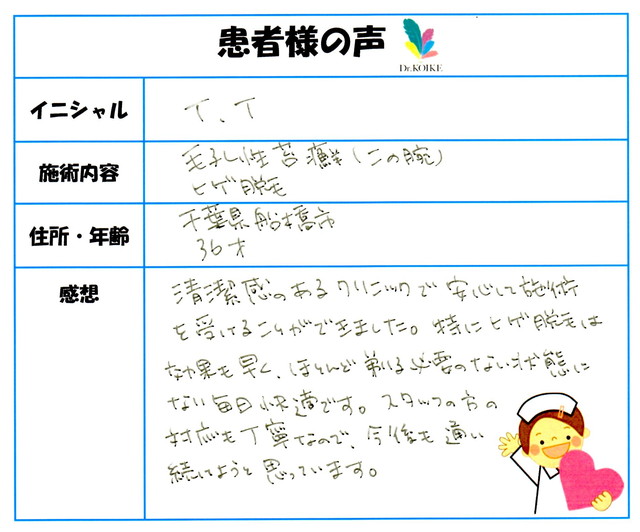 患者様の声
Dr.KOIKE
イニシャル
T.T
施術内容
毛孔性苔癬(二の腕)
ヒゲ脱毛
住所・年齢
千葉県船橋市
36才
感想
清潔感のあるクリニックで安心して施術
を受けることができました。特にヒゲ脱毛は
効果も早く、ほとんど剃る必要のない状態に
なり毎日快適です。スタッフの方の
対応も丁寧なので、今後も通い
続けようと思っています。